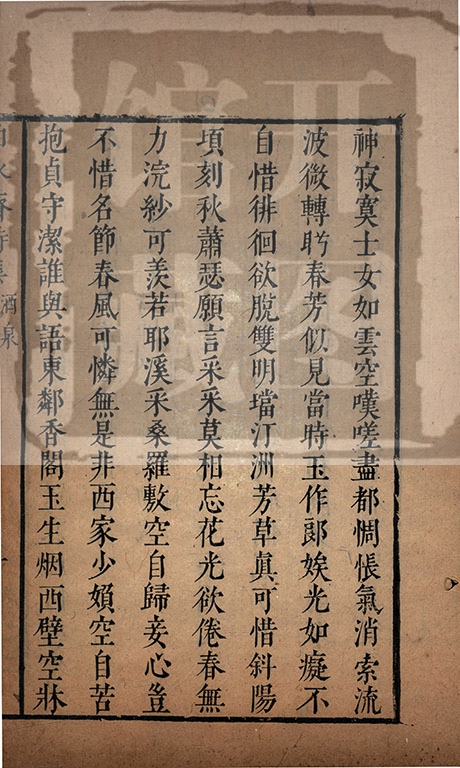 神寂寞士女如雲空嘆嗟盡都惆悵氣消索流
波微轉盻春芳似見當時玉作郎娭光如癡不
自惜徘徊欲脫雙明璫汀洲芳草真可惜斜陽
頃刻秋蕭瑟願言采采莫相忘花光欲倦春無
力浣紗可羨若耶溪采桑羅敷空自歸妾心豈
不惜名節春風可憐無是非西家少婦空自苦
抱貞守潔誰與語東鄰香閣玉生烟西壁空牀
酒泉
開
圖
館
藏